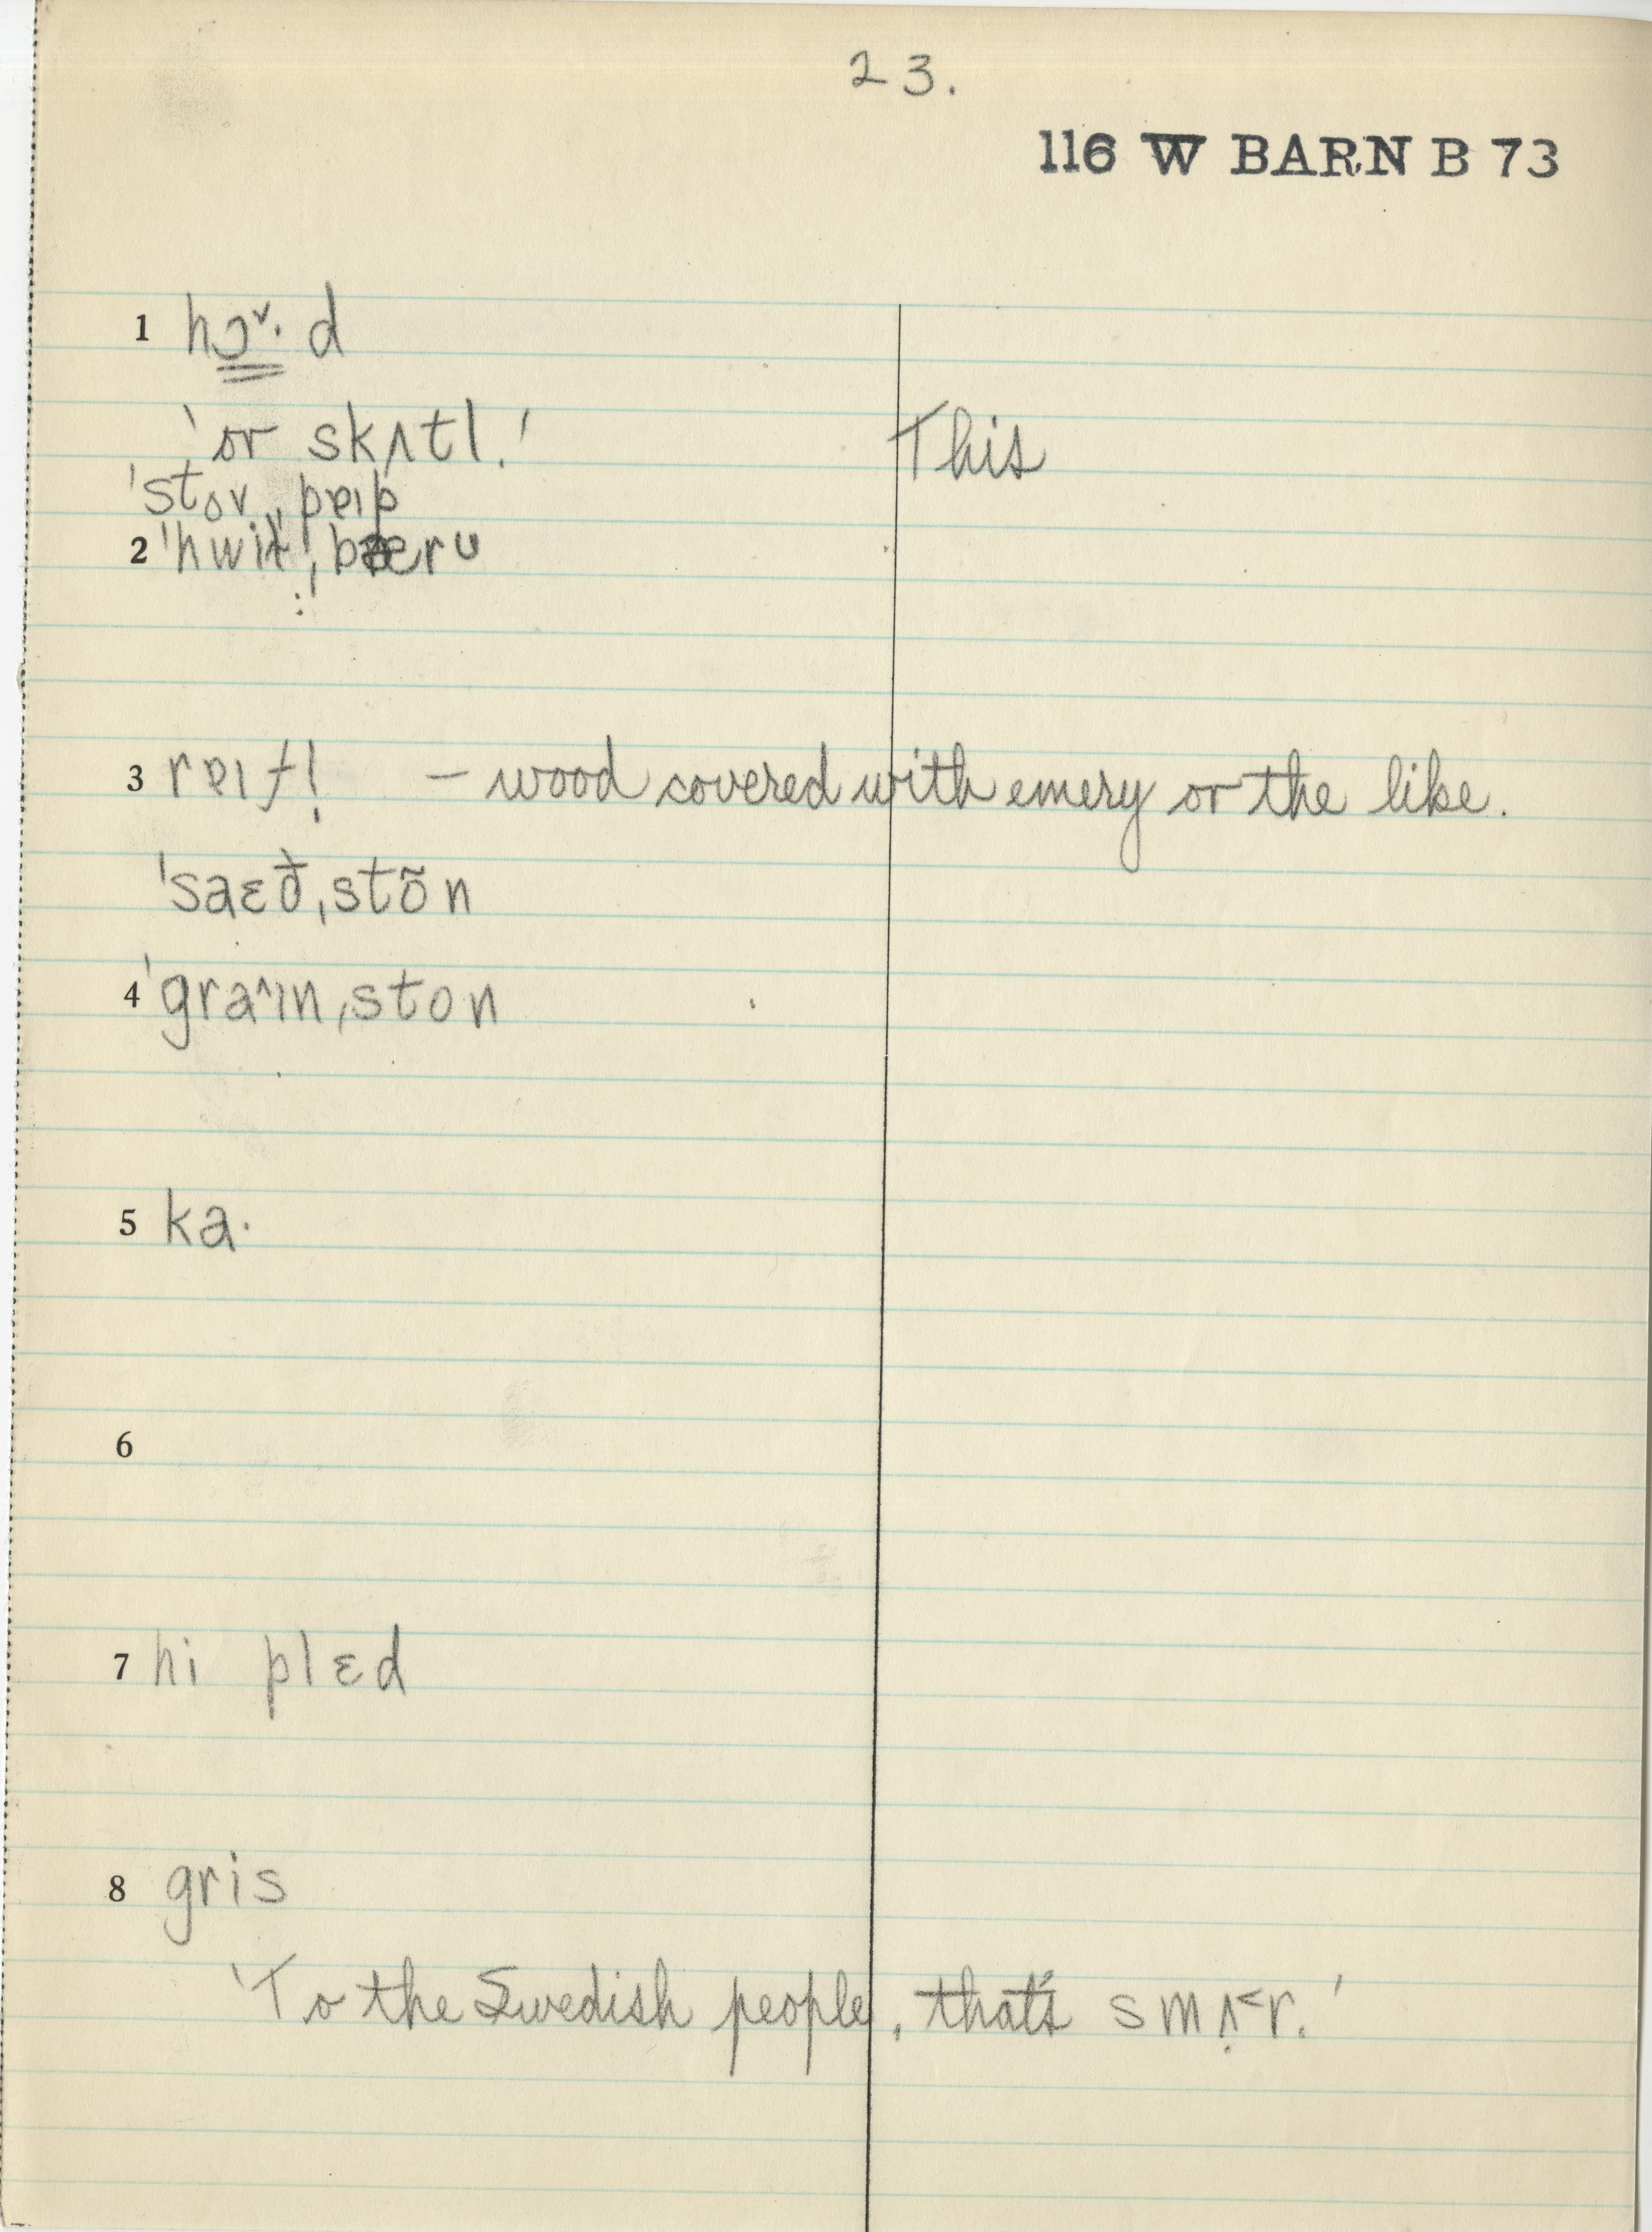 23.
116 W BARN B 73
1 hɔˇ· d
'or skʌtl.' This
'stov ˌpɐıp
2 ˌbæru
3 rɐıfl̩ – wood covered with emery or the like.
'saɛð̃ˌstõn
4 'graˆınˌston
5 ka·
6
7 hi plɛd
8 gris
'To the Swedish people, that's smʌ̣˂r.'